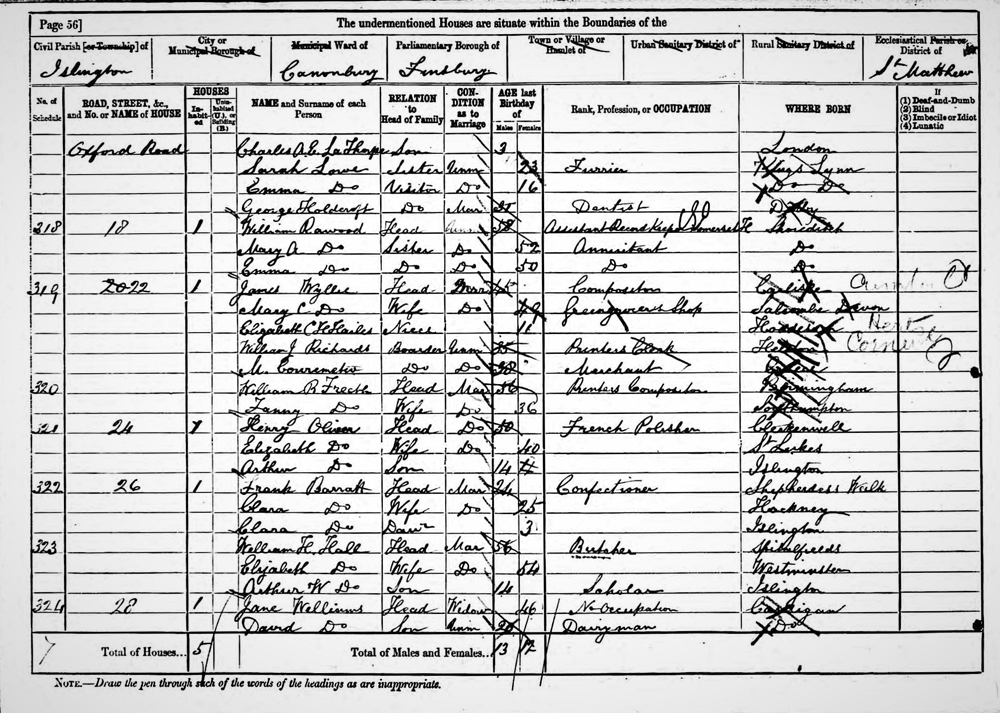 Page 56] The undermentioned Houses are situate within the Boundaries of the
Civil Parish [or Township] of City or Municipal Borough of Municipal Ward of Parliamentary Borough of Town or Village or Hamlet of Urban Sanitary District of Rural Sanitary District of Ecclesiastical Parish or District of
Islington Canonbury Finsbury St Matthew
No. of Schedule ROAD, STREET, &c., and No. or NAME of HOUSE HOUSES In-habited Uninhabited (U.), or Building (B.) NAME and Surname of each Person RELATION to Head of Family CONDITION as to Marriage AGE last Birthday of Males Females Rank, Profession, or OCCUPATION WHERE BORN If (1) Deaf-and-Dumb (2) Blind (3) Imbecile or Idiot (4) Lunatic
Oxford Road Charles A.E. La Thorpe Son 3 London
Sarah Lowe Sister Unm 23 Furrier Lynn
Emma Do Visitor Do 16 Do Do
George Holdcroft Do Mar Dentist
318 18 1 William Rawood Head 58 Assistant Record Keeper Somerset H Shoreditch
Mary A Do Sister Do 52 Annuitant Do
Emma Do Do Do 50 Do Do
319 2022 1 James Wyllie Head Marr Compositor Carlisle
Mary C Do Wife Do 49 Greengrocers Shop Salcombe Devon
Elizabeth C Niece 11
William J Richards Boarder Unm Printers Clerk
M. Do Do 38 Merchant
320 William R Freeth Head Mar 56 Printers Compositor Birmingham
Fanny Do Wife Do 36 Southampton
321 24 1 Henry Oliver Head Do 50 French Polisher Clerkenwell
Elizabeth Do Wife Do 40 St Lukes
Arthur Do Son 14 Islington
322 26 1 Frank Barratt Head Mar 24 Confectioner Shepherdess Walk
Clara Do Wife Do 25 Hackney
Clara Do Daur 3 Islington
323 William H. Hall Head Mar 56 Butcher Spitalfields
Elizabeth Do Wife Do 54 Westminster
Arthur W Do Son 14 Scholar Islington
324 28 1 Jane Williams Head Widow 46 No Occupation Cardigan
David Do Son Unm 20 Dairyman Do
Total of Houses... 5 Total of Males and Females... 13 12
NOTE.—Draw the pen through such of the words of the headings as are inappropriate.